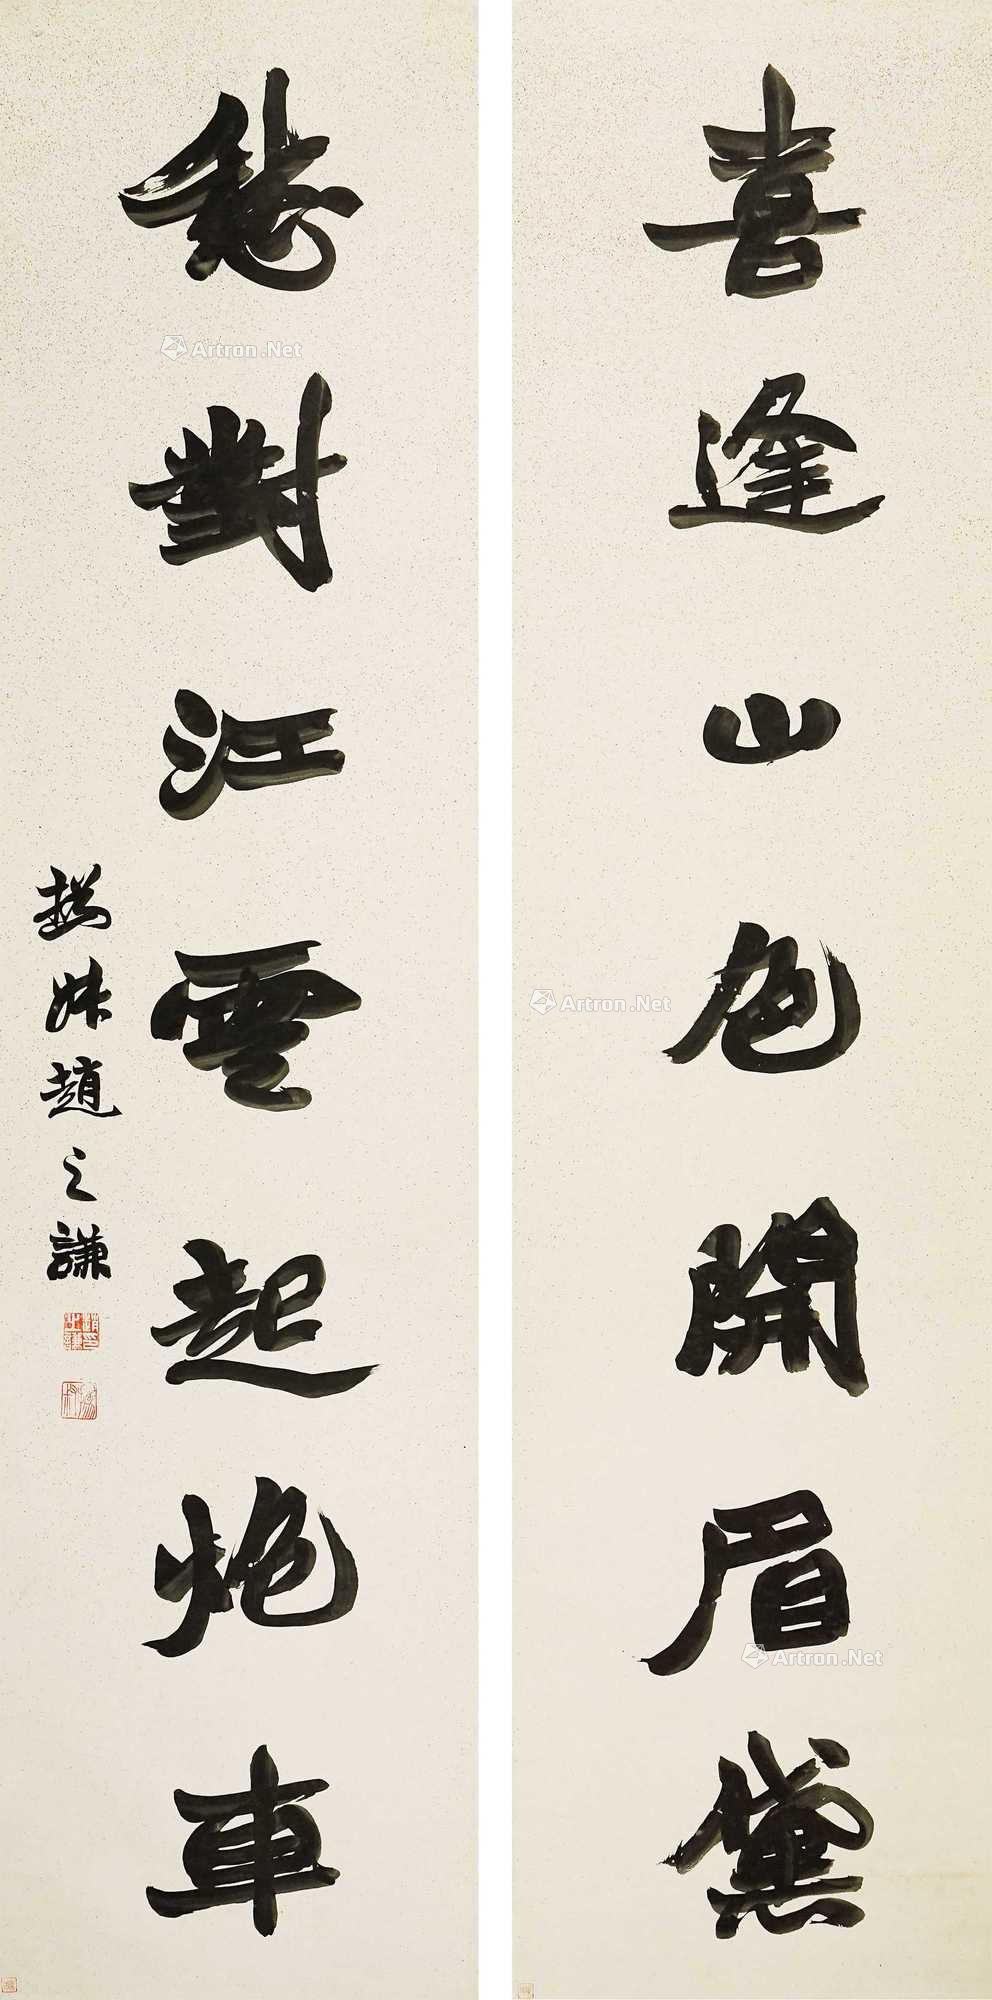 喜逢山色開眉黛
愁對江雲起炮車
撝叔趙之謙
趙之謙印
撝叔
Artron.Net
Artron.Net
Artron.Net